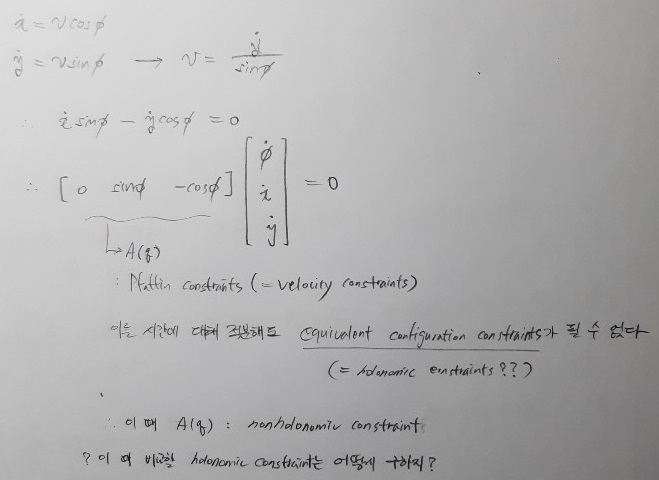 ẋ = vcosϕ
ẏ = vsinϕ → v = ẏ / sinϕ
∴ ẋ sinϕ - ẏ cosϕ = 0
∴ [ 0 sinϕ -cosϕ ] [ ϕ̇ ẋ ẏ ] = 0
↳ A(q)
: Pfaffin constraints (= velocity constraints)
이를 시간에 대해 적분해도 equivalent configuration constraints가 될 수 없다
(= holonomic constraints ??)
∴ 이 때 A(q) : nonholonomic constraint
? 이 때 비교할 holonomic constraint는 어떻게 구하지?